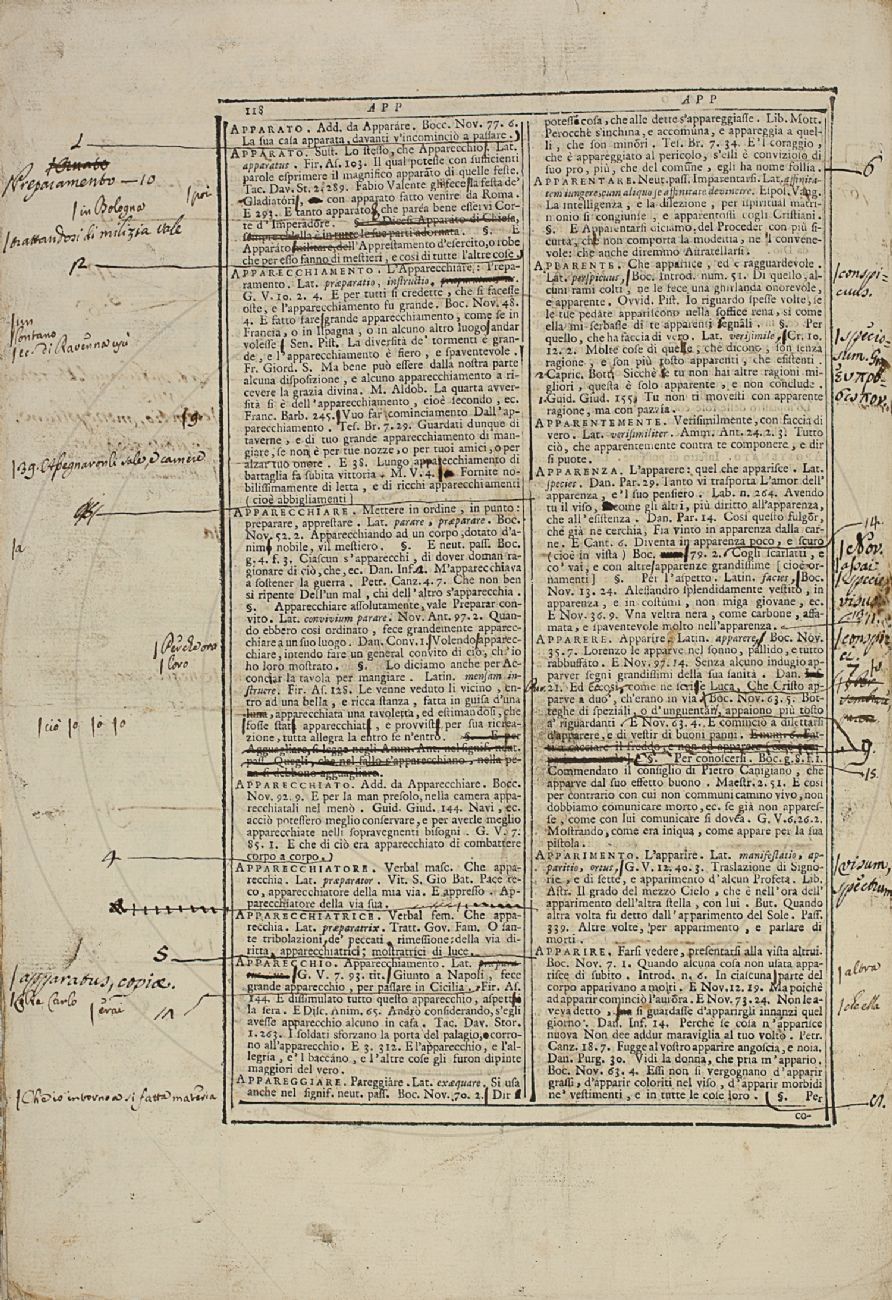 118 APP
APP
APPARATO. Add. da Apparáre. Bocc. Nov. 77. 6.
La sua casa apparata, davanti v'incominciò a passare.
APPARATO. Sust. Lo stesso, che Apparecchio. Lat.
apparatus. Fir. As. 103. Il qual potesse con sufficienti
parole esprimere il magnifico apparato di quelle feste.
Tac. Dav. St. 2. 289. Fabio Valente gli fece la festa de'
Gladiatóri, con apparato fatto venire da Roma.
E 293. E tanto apparato, che parea bene esservi Cor-
te d'Imperadore. §. Dicesi Apparato di Chiesa,
§. E
Apparato militare, dell'Apprestamento d'esercito, o robe
che per esso fanno di mestieri, e così di tutte l'altre cose.
APPARECCHIAMENTO. L'Apparecchiare; Prepa-
ramento. Lat. præparatio, instructio,
G. V. 10. 2. 4. E per tutti si credette, che si facesse
oste, e l'apparecchiamento fu grande. Bocc. Nov. 48.
4. E fatto fare grande apparecchiamento, come se in
Francia, o in Ispagna, o in alcuno altro luogo andar
volesse. Sen. Pist. La diversità de' tormenti è gran-
de, e l'apparecchiamento è fiero, e spaventevole.
Fr. Giord. S. Ma bene può essere dalla nostra parte
alcuna disposizione, e alcuno apparecchiamento a ri-
cevere la grazia divina. M. Aldob. La quarta avver-
sità si è dell'apparecchiamento, cioè secondo, ec.
Franc. Barb. 245. Vuo far cominciamento Dall'ap-
parecchiamento. Tes. Br. 7. 29. Guardati dunque di
taverne, e di tuo grande apparecchiamento di man-
giare, se non è per tue nozze, o per tuoi amici, o per
alzar tuo onore. E 38. Lungo apparecchiamento di
battaglia fa subita vittoria. M. V. 4. Fornite no-
bilissimamente di letta, e di ricchi apparecchiamenti
(cioè abbigliamenti
APPARECCHIARE. Mettere in ordine, in punto:
preparare, apprestare. Lat. parare, præparare. Boc.
Nov. 52. 2. Apparecchiando ad un corpo, dotato d'a-
nima nobile, vil mestiero. §. E neut. pass. Boc.
g. 4. f. 3. Ciascun s'apparecchi, di dover doman ra-
gionare di ciò, che, ec. Dan. Inf. 2. M'apparecchiava
a sostener la guerra. Petr. Canz. 4. 7. Che non ben
si ripente Dell'un mal, chi dell'altro s'apparecchia.
§. Apparecchiare assolutamente, vale Preparar con-
vito. Lat. convivium parare. Nov. Ant. 97. 2. Quan-
do ebbero così ordinato, fece grandemente apparec-
chiare a un suo luogo. Dan. Conv. 1. Volendo apparec-
chiare, intendo fare un general convito di ciò, ch'io
ho loro mostrato. §. Lo diciamo anche per Ac-
conciar la tavola per mangiare. Latin. mensam in-
struere. Fir. As. 128. Le venne veduto lì vicino, en-
tro ad una bella, e ricca stanza, fatta in guisa d'una
luna, apparecchiata una tavoletta, ed estimandosi, che
fosse stata apparecchiata, e provvista per sua ricrea-
zione, tutta allegra la entro se n'entrò. §. E per
Agguagliare, si legge negli Amm. Ant. nel signif. neut.
pass. Quegli, che nel fallo s'apparecchiano, nella pe-
na si debbono agguagliare.
APPARECCHIATO. Add. da Apparecchiare. Bocc.
Nov. 92. 9. E per la man presolo, nella camera appa-
recchiatali nel menò. Guid. Giud. 144. Navi, ec.
acciò potessero meglio conservare, e per averle meglio
apparecchiate nelli sopravegnenti bisogni. G. V. 7.
85. 1. E che di ciò era apparecchiato di combattere
corpo a corpo.
APPARECCHIATORE. Verbal masc. Che appa-
recchia. Lat. præparator. Vit. S. Gio Bat. Pace re-
co, apparecchiatore della mia via. E appresso. Ap-
parecchiatore della via sua.
APPARECCHIATRICE. Verbal fem. Che appa-
recchia. Lat. præparatrix. Tratt. Gov. Fam. O san-
te tribolazioni, de' peccati rimessione: della via di-
ritta apparecchiatrici: mostratrici di luce.
APPARECCHIO. Apparecchiamento. Lat.
G. V. 7. 93. tit. Giunto a Napoli, fece
grande apparecchio, per passare in Cicilia. Fir. As.
144. E dissimulato tutto questo apparecchio, aspetta
la sera. E Disc. Anim. 65. Andrò considerando, s'egli
avesse apparecchio alcuno in casa. Tac. Dav. Stor.
1. 263. I soldati sforzano la porta del palagio, e corro-
no all'apparecchio. E 3. 312. E l'apparecchio, e l'al-
legria, e'l baccáno, e l'altre cose gli furon dipinte
maggiori del vero.
APPAREGGIARE. Pareggiáre. Lat. exæquare. Si usa
anche nel signif. neut. pass. Boc. Nov. 70. 2. Dir
potessi cosa, che alle dette s'appareggiasse. Lib. Mott.
Perocchè s'inchina, e accomuna, e appareggia a quel-
li, che son minóri. Tes. Br. 7. 34. E'l coraggio,
che è appareggiato al pericolo, s'elli è conviziolo di
suo pro, più, che del comune, egli ha nome follia.
APPARENTARE. Neut. pass. Imparentarsi. Lat. affinita-
tem iungere, cum aliquo se affinitate devincire. Espos. Vang.
La intelligenza, e la dilezion, per ispiritual matri-
monio si congiunse, e apparentossi cogli Cristiani.
§. E Apparentarsi diciamo, del Proceder con più si-
curtà, che non comporta la modestia, ne 'l convene-
vole: che anche diremmo Afratellarsi.
APPARENTE. Che apparisce, ed è ragguardevole.
Lat. perspicuus, Boc. Introd. num. 51. Di quello, al-
cuni rami colti, ne le fece una ghirlanda onorevole,
e apparente. Ovvid. Pist. Io riguardo spesse volte, se
le tue pedate appariscono nella soffice rena, sì come
ella mi serbasse di te apparenti segnáli. §. Per
quello, che ha faccia di vero. Lat. verisimile, Cr. 10.
12. 2. Molte cose di quelle, che dicono, son senza
ragione, e son più tosto apparenti, che esistenti.
Capric. Bott. Sicchè se tu non hai altre ragioni mi-
gliori, questa è solo apparente, e non conclude.
Guid. Giud. 155. Tu non ti movesti con apparente
ragione, ma con pazzia.
APPARENTEMENTE. Verisimilmente, con faccia di
vero. Lat. verisimiliter. Amm. Ant. 24. 2. 3. Tutto
ciò, che apparentemente contra te componere, e dir
si puote.
APPARENZA. L'apparere: quel che apparisce. Lat.
species. Dan. Par. 29. Tanto vi trasporta L'amor dell'
apparenza, e'l suo pensiero. Lab. n. 264. Avendo
tu il viso, come gli altri, più diritto all'apparenza,
che all'esistenza. Dan. Par. 14. Così questo fulgór,
che già ne cerchia, Fia vinto in apparenza dalla car-
ne. E Cant. 6. Diventa in apparenza poco, e scuro
(cioè in vista) Boc. 79. 2. Cogli scarlatti, e
co' vai, e con altre apparenze grandissime [cioè or-
namenti] §. Per l'aspetto. Latin. facies, Boc.
Nov. 13. 24. Alessandro splendidamente vestito, in
apparenza, e in costumi, non miga giovane, ec.
E Nov. 36. 9. Una veltra nera, come carbone, affa-
mata, e spaventevole molto nell'apparenza.
APPARERE. Apparire. Latin. apparere, Boc. Nov.
35. 7. Lorenzo le apparve nel sonno, pallido, e tutto
rabbuffato. E Nov. 97. 14. Senza alcuno indugio ap-
parver segni grandissimi della sua sanità. Dan.
Pur. 21. Ed ecco, sì come ne scrisse Luca, Che Cristo ap-
parve a duo', ch'erano in via. Boc. Nov. 63. 5. Bot-
teghe di speziali, o d'unguentari, appaiono più tosto
a' riguardanti. E Nov. 63. 4. E cominciò a dilettarsi
d'apparere, e di vestir di buoni panni.
§. Per conoscersi. Boc. g. 8. f. 1.
Commendato il consiglio di Pietro Canigiano, che
apparve dal suo effetto buono. Maestr. 2. 51. E così
per contrario con cui non communicammo vivo, non
dobbiamo comunicare morto, ec. se già non appares-
se, come con lui comunicare si dovea. G. V. 6. 26. 2.
Mostrando, come era iniqua, come appare per la sua
pistola.
APPARIMENTO. L'apparire. Lat. manifestatio, ap-
paritio, ortus, G. V. 12. 40. 3. Traslazione di Signo-
rie, e di sette, e apparimento d'alcun Profeta. Lib.
Astr. Il grado del mezzo Cielo, che è nell'ora dell'
apparimento dell'altra stella, con lui. But. Quando
altra volta fu detto dall'apparimento del Sole. Pass.
339. Altre volte, per apparimento, e parlare di
morti.
APPARIRE. Farsi vedere, presentarsi alla vista altrui.
Boc. Nov. 7. 1. Quando alcuna cosa non usata appa-
risce di subito. Introd. n. 6. In ciascuna parte del
corpo apparivano a molti. E Nov. 12. 19. Ma poichè
ad apparir cominciò l'auróra. E Nov. 73. 24. Non le a-
veva detto, si guardasse d'apparirgli innanzi quel
giorno. Dan. Inf. 14. Perchè se cosa n'apparisce
nuova Non dee addur maraviglia al tuo volto. Petr.
Canz. 18. 7. Fugge al vostro apparire angoscia, e noia.
Dan. Purg. 30. Vidi la donna, che pria m'appario.
Boc. Nov. 63. 4. Essi non si vergognano d'apparir
grassi, d'apparir coloriti nel viso, d'apparir morbidi
ne' vestimenti, e in tutte le cose loro. §. Per
co-
Preparamento — 10
in Bologna
trattandosi di milizia vale
12
un
lontano
9
39. Assegnaronli sale, e camere
a
Perchè ora
loro
cio
4
5
apparatus, copiæ.
Re Carlo
erae
11
Che io intorno a sì fatta materia
6
conspi-
cuus.
specio-
sum. Gr.
14.
Nov.
assai
species
visus
9.
15.
visum,
spectrum
alora
che ella